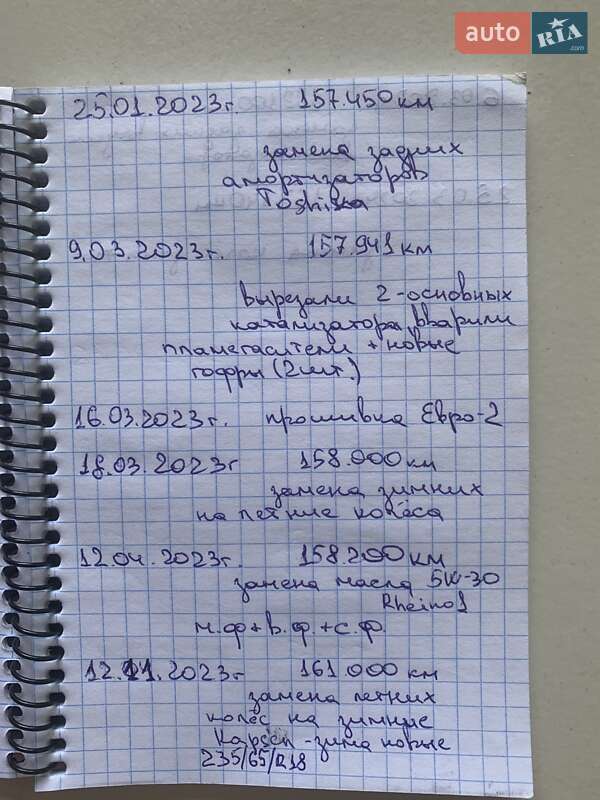 auto RIA .com
25.01.2023г. 157.450 км
замена задних
амортизаторов
Toshika
9.03.2023г. 157.941 км
вырезали 2-основных
катализатора, вварили
пламегасители + новые
гофры (2 шт.)
16.03.2023г. прошивка Евро-2
18.03.2023г 158.000 км
замена зимних
на летние колёса
12.04.2023г. 158.200 км
замена масла 5W-30
Rheinol
м.ф + в.ф. + с.ф.
12.11.2023г 161.000 км
замена летних
колёс на зимние
-зима новые
235/65/R18